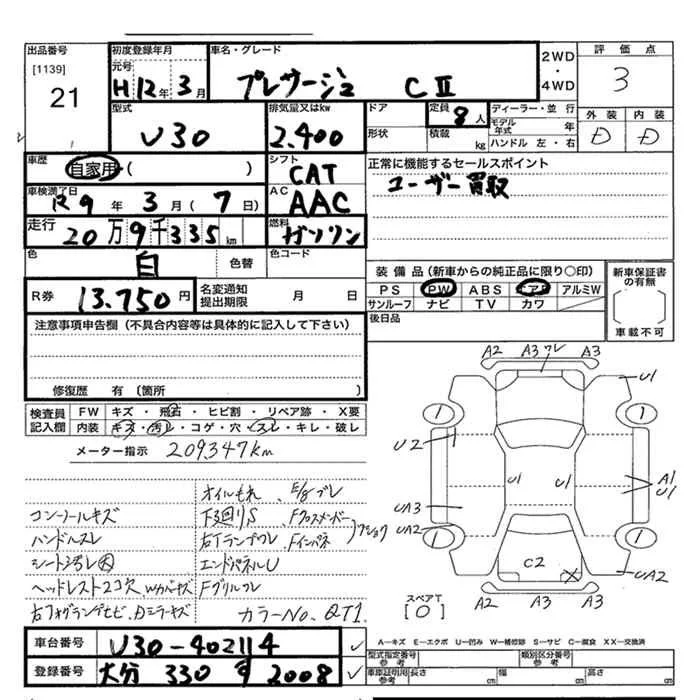 出品番号
[1139]
21
初度登録年月
元号
H 12 年 3 月
車名・グレード
プレサージュ CⅡ
2WD
・
4WD
評価点
3
型式
U30
排気量又はkw
2.400
ドア
形状
定員
8 人
積載
kg
ディーラー・並行
モデル年式 年
ハンドル 左・右
外装 内装
D D
車歴
自家用 ( )
シフト
CAT
車検満了日
R9 年 3 月 ( 7 日)
AC
AAC
走行
20 万 9 千 335 km
燃料
ガソリン
正常に機能するセールスポイント
ユーザー買取
色
白
色替
色コード
R券
13.750 円
名変通知
提出期限
月 日
装備品(新車からの純正品に限り○印)
PS PW ABS エアB アルミW
サンルーフ ナビ TV カワ
後日品
新車保証書
の有無
車載不可
注意事項申告欄(不具合内容等は具体的に記入して下さい)
修復歴 有 〔箇所 〕
検査員
記入欄
FW キズ・飛石・ヒビ割・リペア跡・X要
内装 キズ・汚レ・コゲ・穴・スレ・キレ・破レ
メーター指示 209347km
オイルもれ、E/gブレ
コンソールキズ 下廻りS Fクロスメンバー
ハンドルスレ 右Tランプワレ Fインパネ
シート汚レ大 エンドパネルU
ヘッドレスト2コ欠、Wカバーキズ Fグリルワレ
カラーNo. QT1
車台番号
U30-402114
登録番号
大分 330 す 2008
A2 A3 ワレ A3
U1
1 1
U2
U1 U1
A1
U1
UA3
UA2
1 1
C2
UA2
スペアT
[0]
A2 A3 A3
A―キズ E―エクボ U―凹み W―補修跡 S―サビ C―腐食 XX―交換済
型式指定番号
参考
類別区分番号
参考
車庫証明用
参考
長さ cm
幅 cm
高さ cm